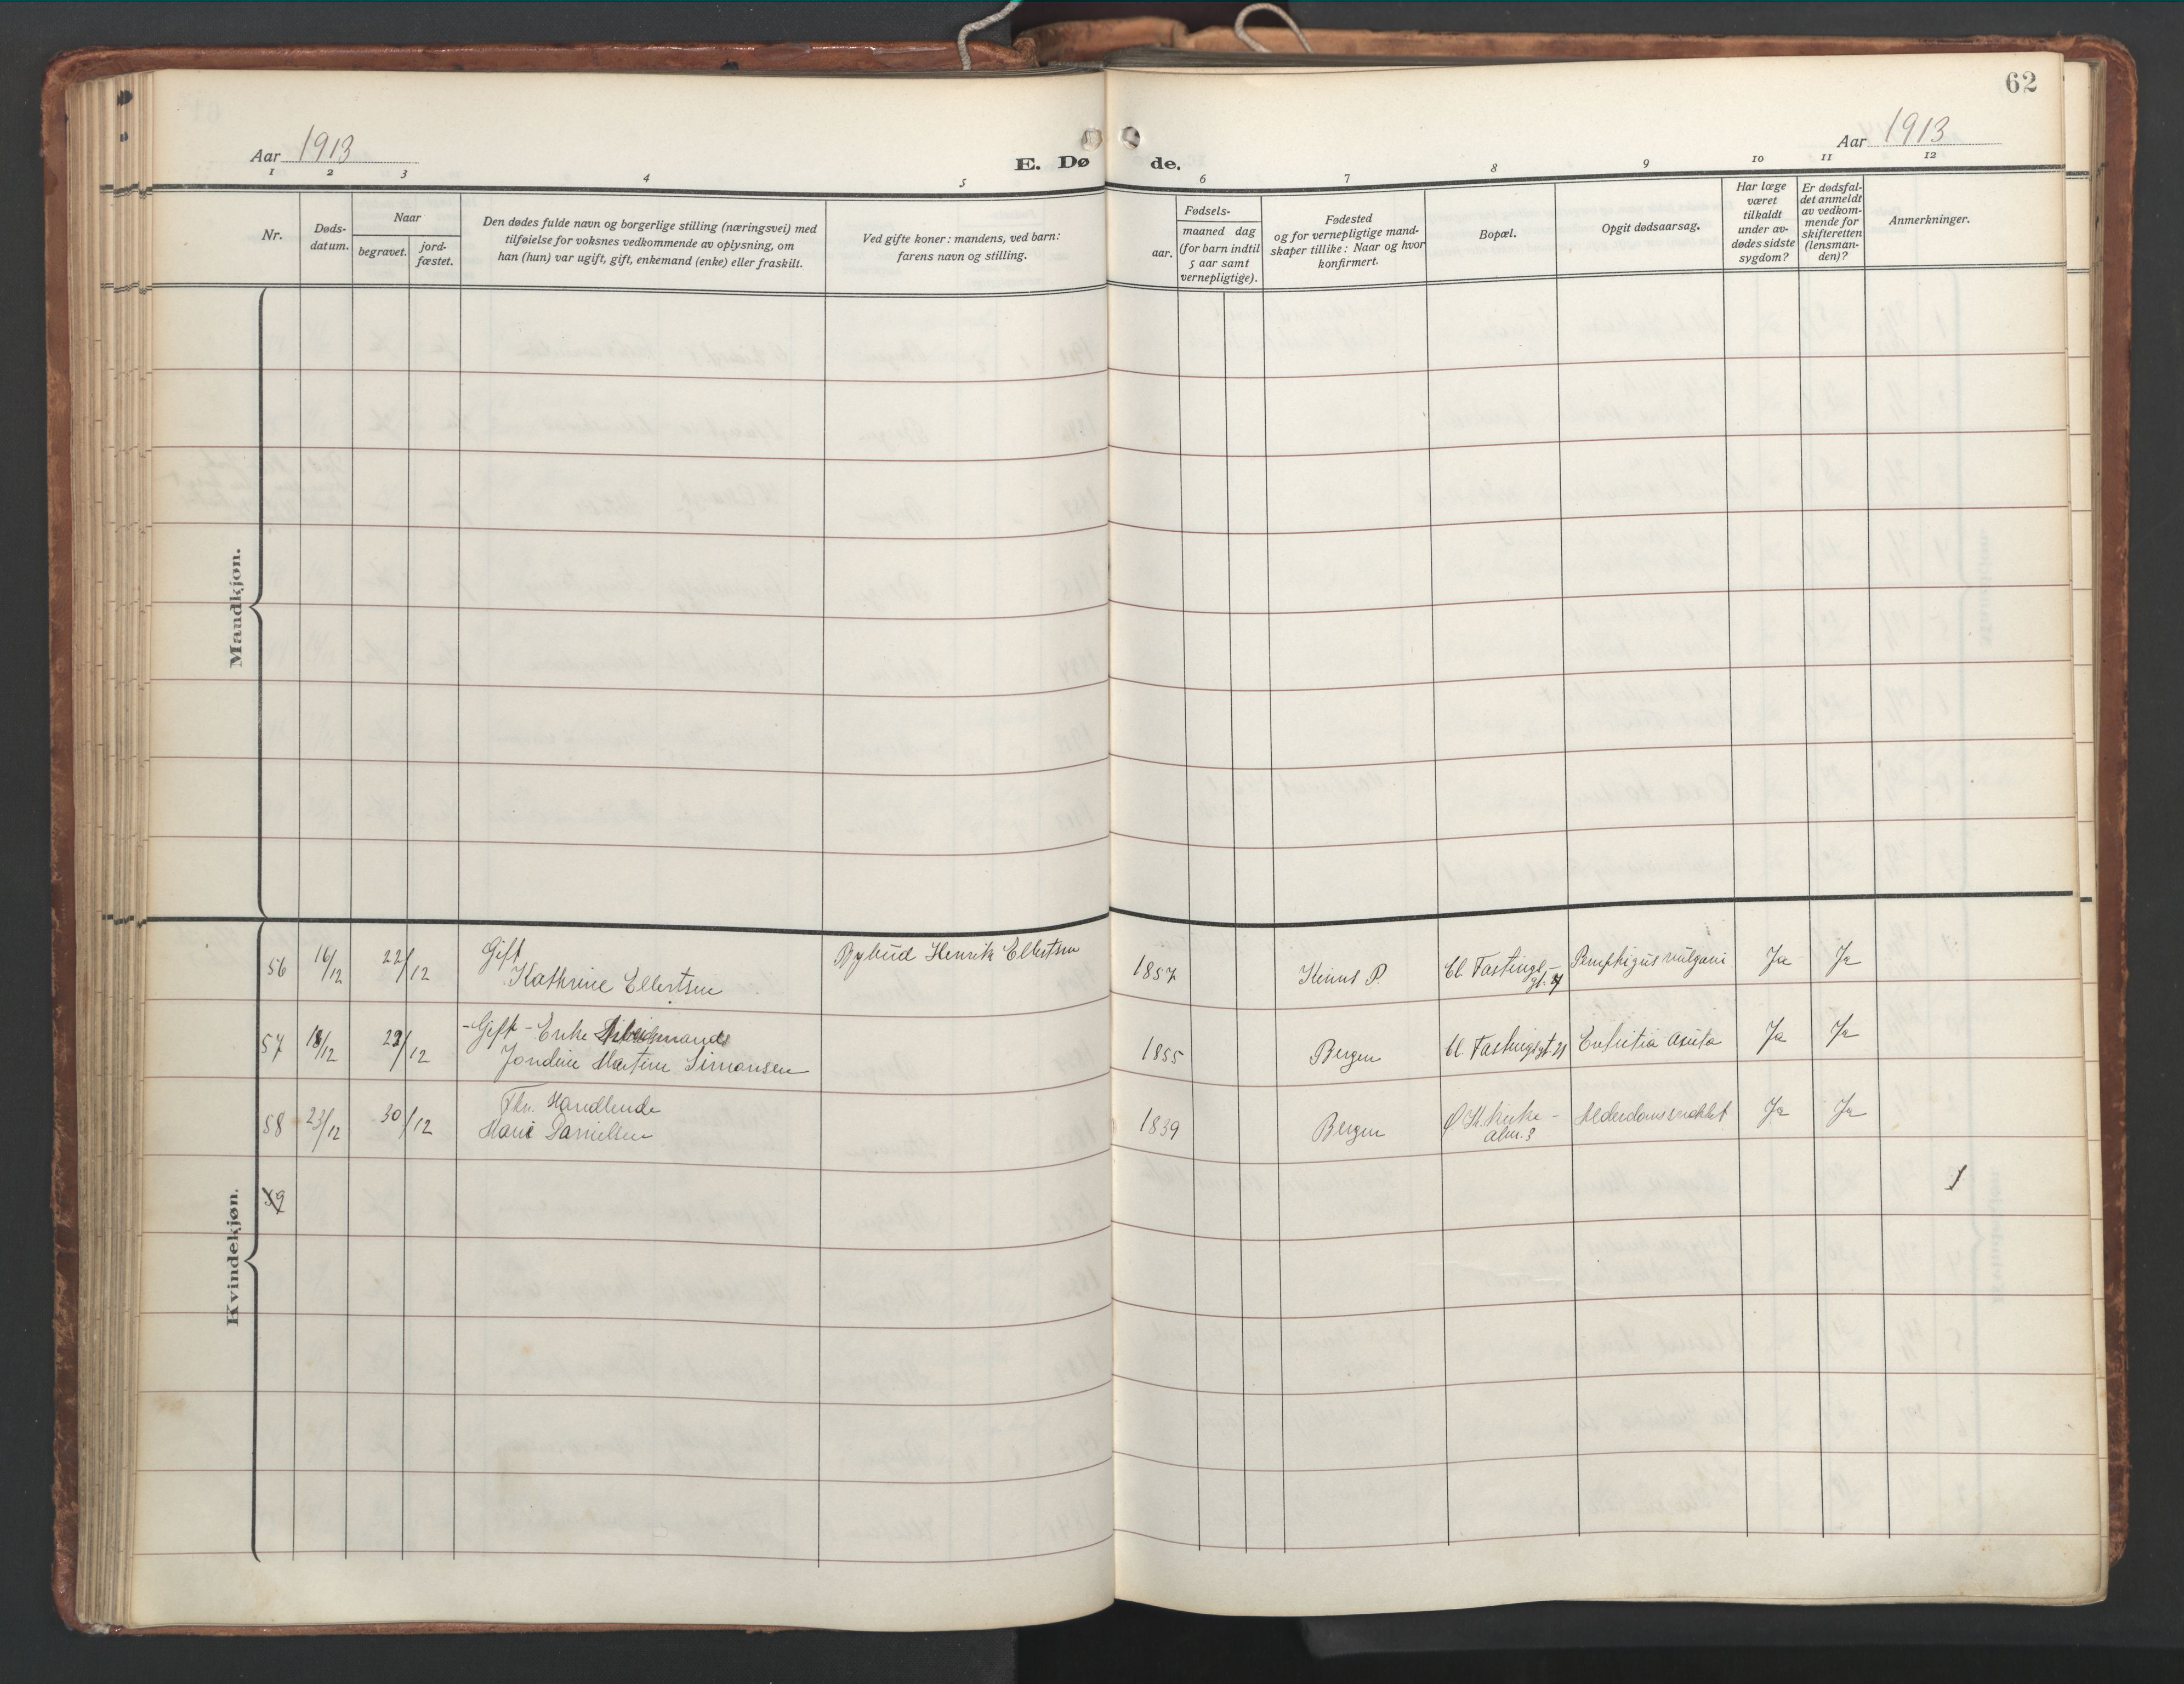 62
Aar 1913
E. Dø de.
Aar 1913
1 2 3 4 5 6 7 8 9 10 11 12
Nr.
Døds-
datum.
Naar
begravet.
jord-
fæstet.
Den dødes fulde navn og borgerlige stilling (næringsvei) med
tilføielse for voksnes vedkommende av oplysning, om
han (hun) var ugift, gift, enkemand (enke) eller fraskilt.
Ved gifte koner: mandens, ved barn:
farens navn og stilling.
Fødsels-
aar.
maaned dag
(for barn indtil
5 aar samt
vernepligtige).
Fødested
og for vernepligtige mand-
skaper tillike: Naar og hvor
konfirmert.
Bopæl.
Opgit dødsaarsag.
Har læge
været
tilkaldt
under av-
dødes sidste
sygdom?
Er dødsfal-
det anmeldt
av vedkom-
mende for
skifteretten
(lensman-
den)?
Anmerkninger.
Mandkjøn.
Kvindekjøn.
56 16/12 22/12 Gift
Kathrine Ellertsen
Bybud Henrik Ellertsen 1857 Kinns P. Cl. Fastings-
gt. 21 Pemphigus vulgaris Ja Ja
57 18/12 22/12 -Gift- Enke Arbeidsmands
Jondine Martine Simonsen
1855 Bergen Cl. Fastingsgt 21 Enteritis acuta Ja Ja
58 23/12 30/12 Fhv. Handlende
Marie Danielsen
1839 Bergen Ø St. kirke-
alm. 3 Alderdomssvakhet Ja Ja
59
1